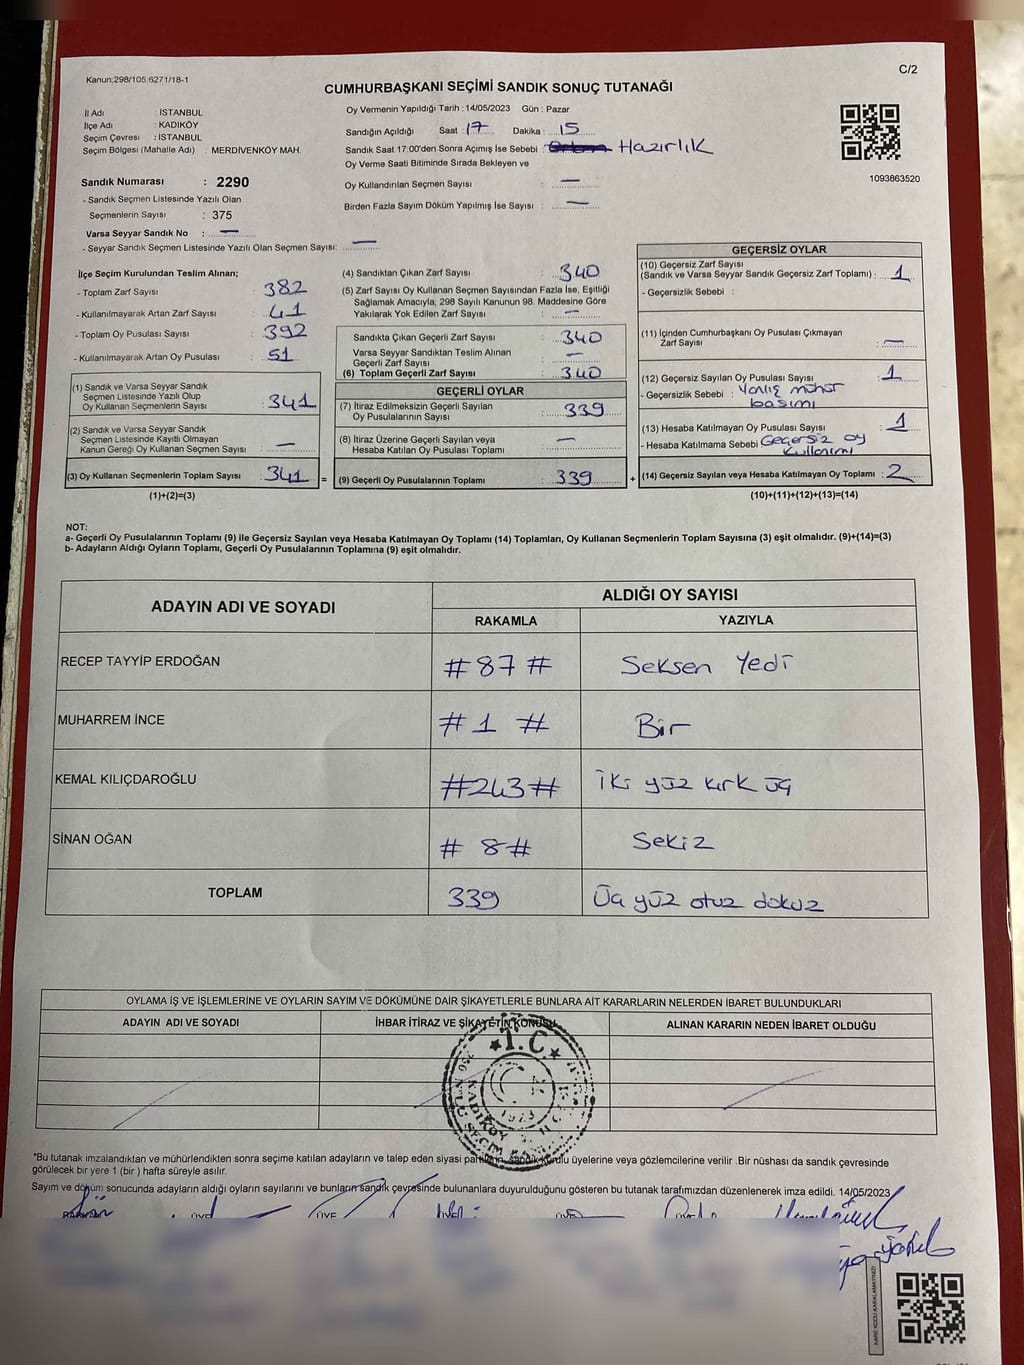 Kanun:298/105,6271/18-1
C/2
CUMHURBAŞKANI SEÇİMİ SANDIK SONUÇ TUTANAĞI
İl Adı : İSTANBUL
İlçe Adı : KADIKÖY
Seçim Çevresi : İSTANBUL
Seçim Bölgesi (Mahalle Adı) : MERDİVENKÖY MAH.
Sandık Numarası : 2290
- Sandık Seçmen Listesinde Yazılı Olan
Seçmenlerin Sayısı : 375
Varsa Seyyar Sandık No : —
- Seyyar Sandık Seçmen Listesinde Yazılı Olan Seçmen Sayısı: —
Oy Vermenin Yapıldığı Tarih : 14/05/2023 Gün : Pazar
Sandığın Açıldığı Saat : 17 Dakika : 15
Sandık Saat 17:00'den Sonra Açımış İse Sebebi : Hazırlık
Oy Verme Saati Bitiminde Sırada Bekleyen ve
Oy Kullandırılan Seçmen Sayısı : —
Birden Fazla Sayım Döküm Yapılmış İse Sayısı : —
1093863520
İlçe Seçim Kurulundan Teslim Alınan;
- Toplam Zarf Sayısı : 382
- Kullanılmayarak Artan Zarf Sayısı : 41
- Toplam Oy Pusulası Sayısı : 392
- Kullanılmayarak Artan Oy Pusulası : 51
(1) Sandık ve Varsa Seyyar Sandık
Seçmen Listesinde Yazılı Olup
Oy Kullanan Seçmenlerin Sayısı : 341
(2) Sandık ve Varsa Seyyar Sandık
Seçmen Listesinde Kayıtlı Olmayan
Kanun Gereği Oy Kullanan Seçmen Sayısı : —
(3) Oy Kullanan Seçmenlerin Toplam Sayısı : 341 =
(1)+(2)=(3)
(4) Sandıktan Çıkan Zarf Sayısı : 340
(5) Zarf Sayısı Oy Kullanan Seçmen Sayısından Fazla İse, Eşitliği
Sağlamak Amacıyla, 298 Sayılı Kanunun 98. Maddesine Göre
Yakılarak Yok Edilen Zarf Sayısı : —
Sandıkta Çıkan Geçerli Zarf Sayısı : 340
Varsa Seyyar Sandıktan Teslim Alınan
Geçerli Zarf Sayısı : —
(6) Toplam Geçerli Zarf Sayısı : 340
GEÇERLİ OYLAR
(7) İtiraz Edilmeksizin Geçerli Sayılan
Oy Pusulalarının Sayısı : 339
(8) İtiraz Üzerine Geçerli Sayılan veya
Hesaba Katılan Oy Pusulası Toplamı : —
(9) Geçerli Oy Pusulalarının Toplamı : 339 +
GEÇERSİZ OYLAR
(10) Geçersiz Zarf Sayısı
(Sandık ve Varsa Seyyar Sandık Geçersiz Zarf Toplamı) : 1
- Geçersizlik Sebebi :
(11) İçinden Cumhurbaşkanı Oy Pusulası Çıkmayan
Zarf Sayısı : —
(12) Geçersiz Sayılan Oy Pusulası Sayısı : 1
- Geçersizlik Sebebi : Yanlış mühür
basımı
(13) Hesaba Katılmayan Oy Pusulası Sayısı : 1
- Hesaba Katılmama Sebebi Geçersiz oy
kullanımı
(14) Geçersiz Sayılan veya Hesaba Katılmayan Oy Toplamı : 2
(10)+(11)+(12)+(13)=(14)
NOT:
a- Geçerli Oy Pusulalarının Toplamı (9) ile Geçersiz Sayılan veya Hesaba Katılmayan Oy Toplamı (14) Toplamları, Oy Kullanan Seçmenlerin Toplam Sayısına (3) eşit olmalıdır. (9)+(14)=(3)
b- Adayların Aldığı Oyların Toplamı, Geçerli Oy Pusulalarının Toplamına (9) eşit olmalıdır.
ADAYIN ADI VE SOYADI
ALDIĞI OY SAYISI
RAKAMLA YAZIYLA
RECEP TAYYİP ERDOĞAN # 87 # Seksen Yedi
MUHARREM İNCE # 1 # Bir
KEMAL KILIÇDAROĞLU #243# İki yüz kırk üç
SİNAN OĞAN # 8# Sekiz
TOPLAM 339 Üç yüz otuz dokuz
OYLAMA İŞ VE İŞLEMLERİNE VE OYLARIN SAYIM VE DÖKÜMÜNE DAİR ŞİKAYETLERLE BUNLARA AİT KARARLARIN NELERDEN İBARET BULUNDUKLARI
ADAYIN ADI VE SOYADI İHBAR İTİRAZ VE ŞİKAYETİN KONUSU ALINAN KARARIN NEDEN İBARET OLDUĞU
T.C.
1923
KADIKÖY
*Bu tutanak imzalandıktan ve mühürlendikten sonra seçime katılan adayların ve talep eden siyasi partilerin, sandık kurulu üyelerine veya gözlemcilerine verilir .Bir nüshası da sandık çevresinde
görülecek bir yere 1 (bir ) hafta süreyle asılır.
Sayım ve döküm sonucunda adayların aldığı oyların sayılarını ve bunların sandık çevresinde bulunanlara duyurulduğunu gösteren bu tutanak tarafımızdan düzenlenerek imza edildi. 14/05/2023
BAŞKAN ÜYE ÜYE ÜYE ÜYE
KARE KODU KARALAMAYINIZ!